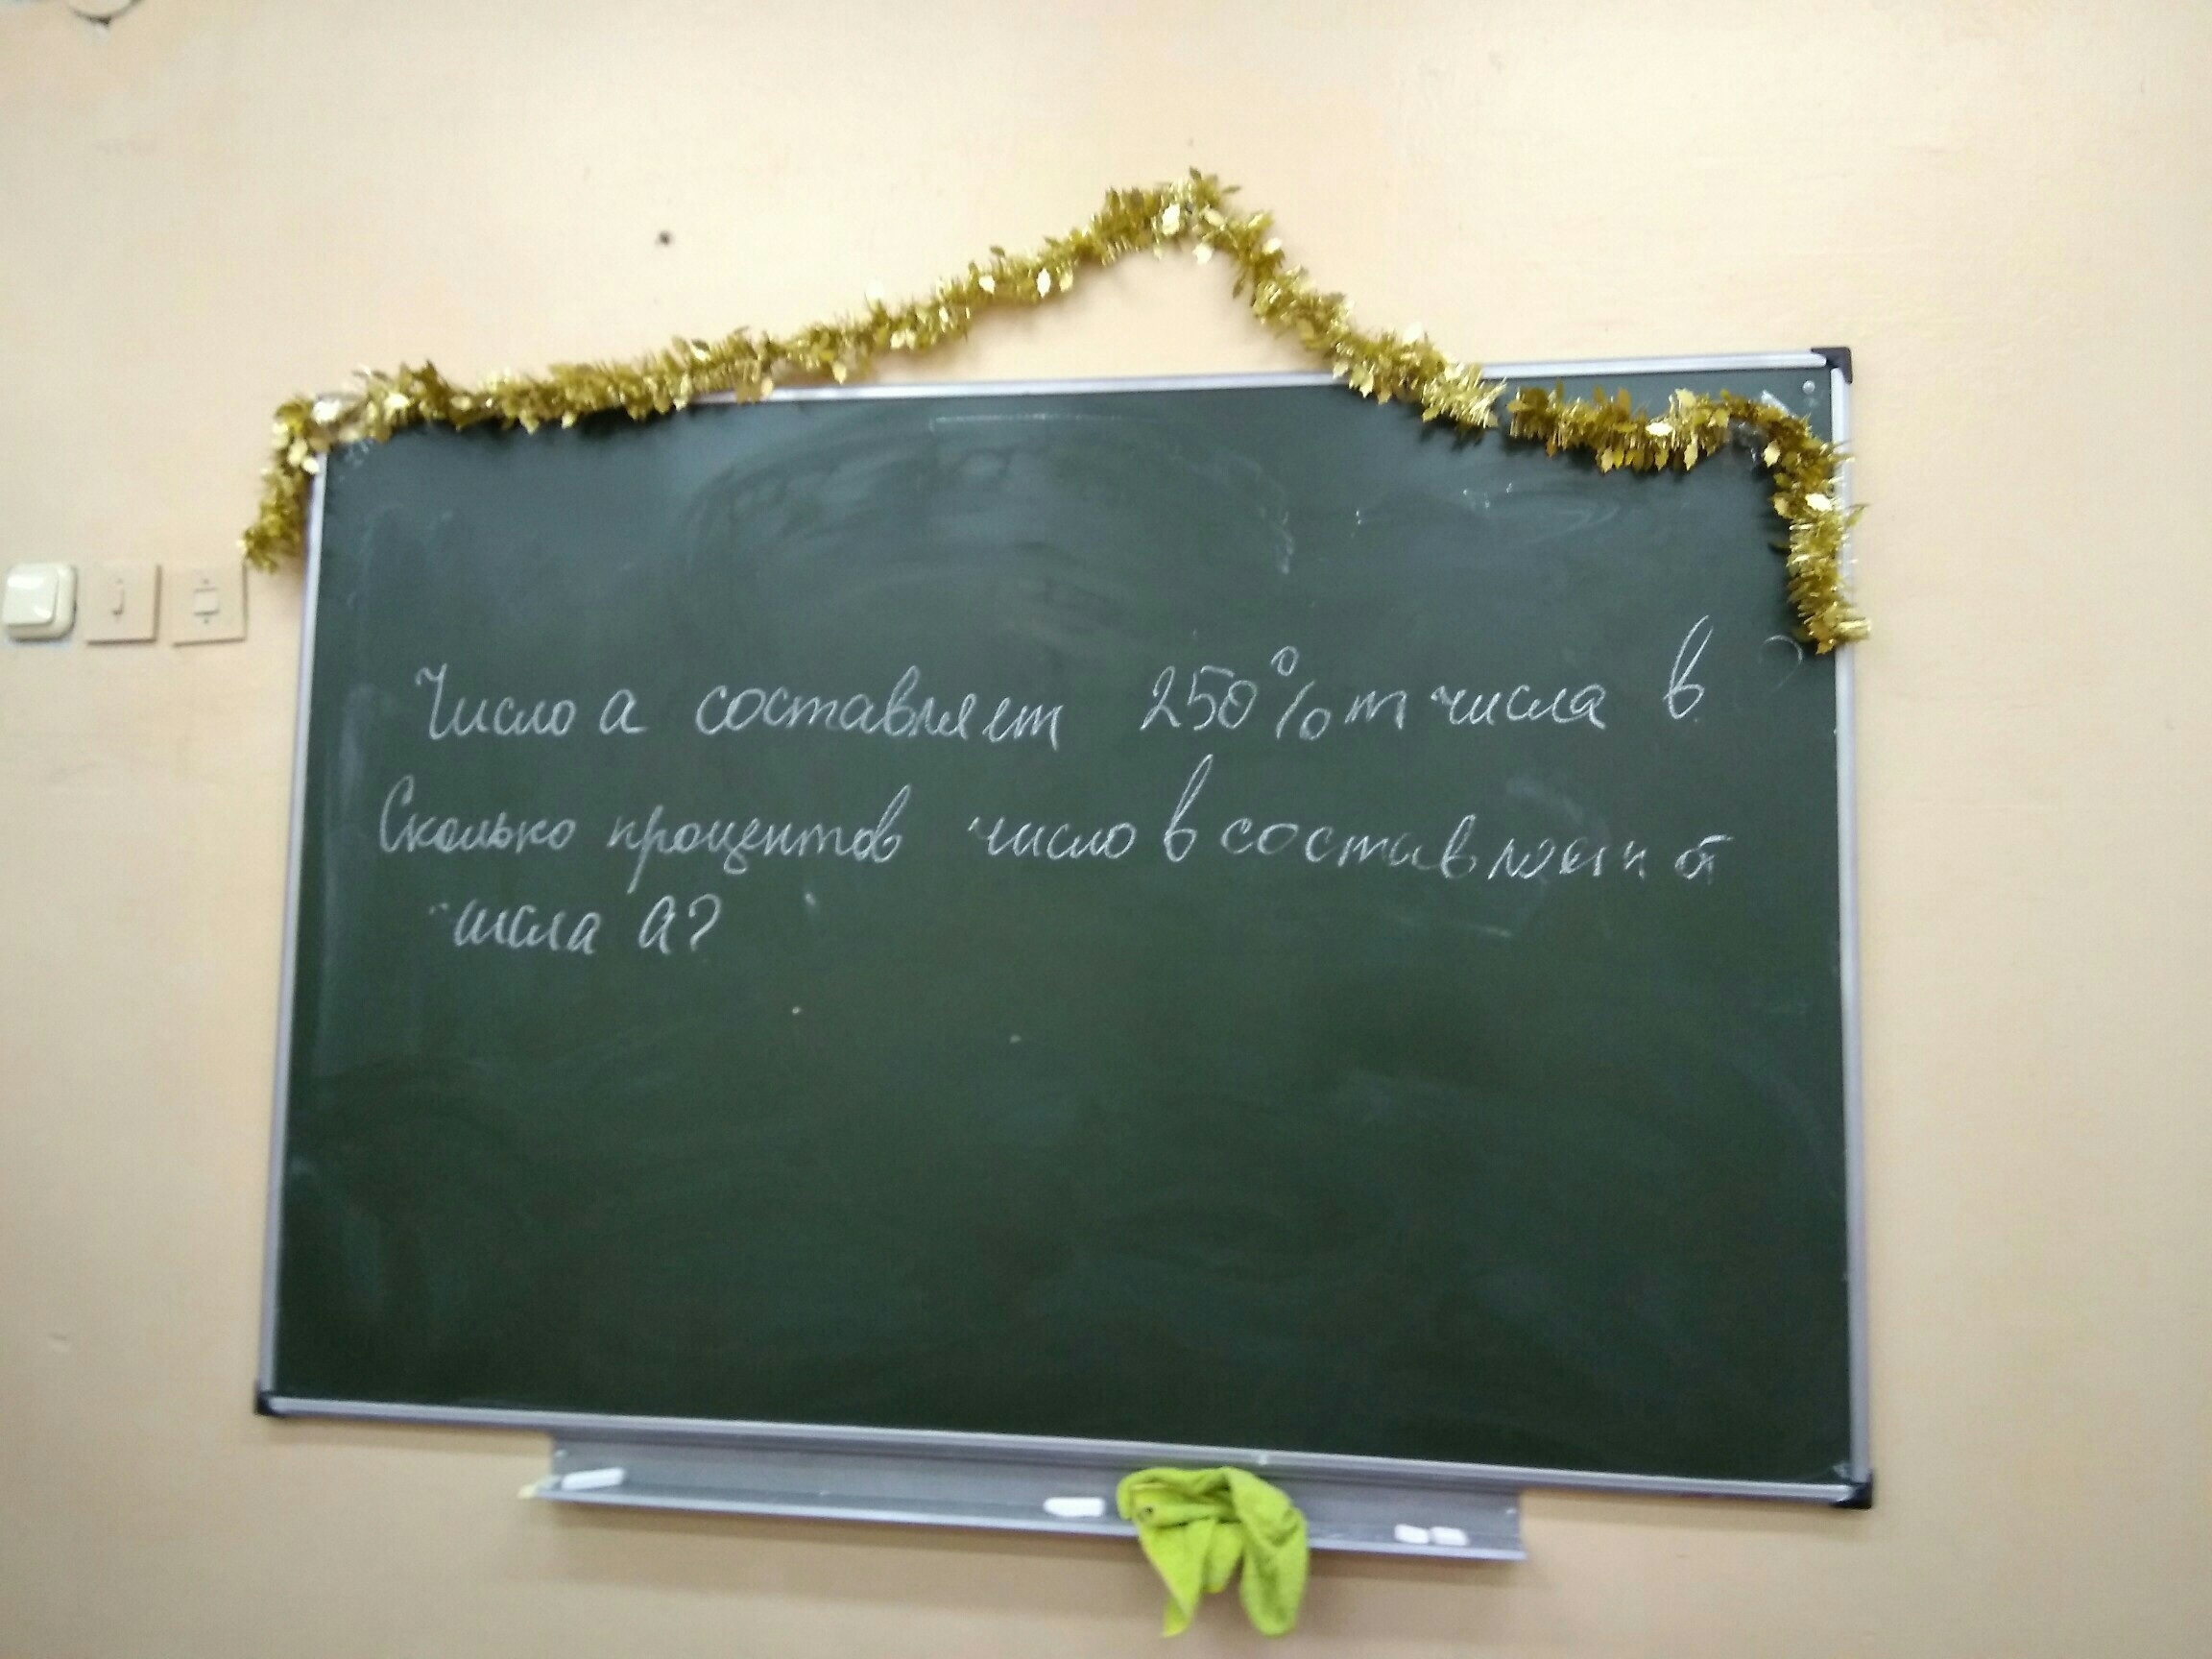 Число а составляет 250% от числа в
Сколько процентов число в составляет от
числа а?